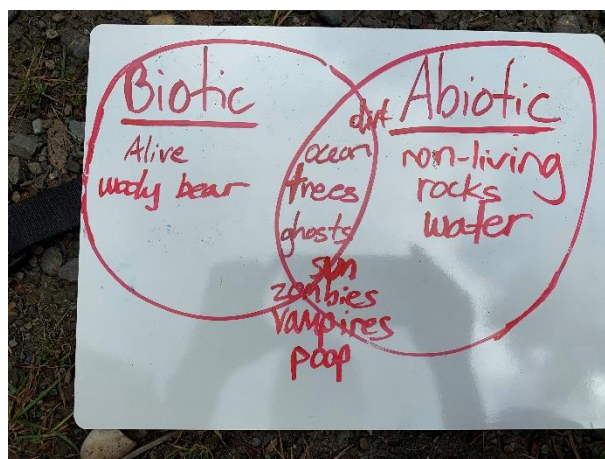 Biotic
Alive
wooly bear
dirt
ocean
trees
ghosts
sun
zombies
vampires
poop
Abiotic
non-living
rocks
water